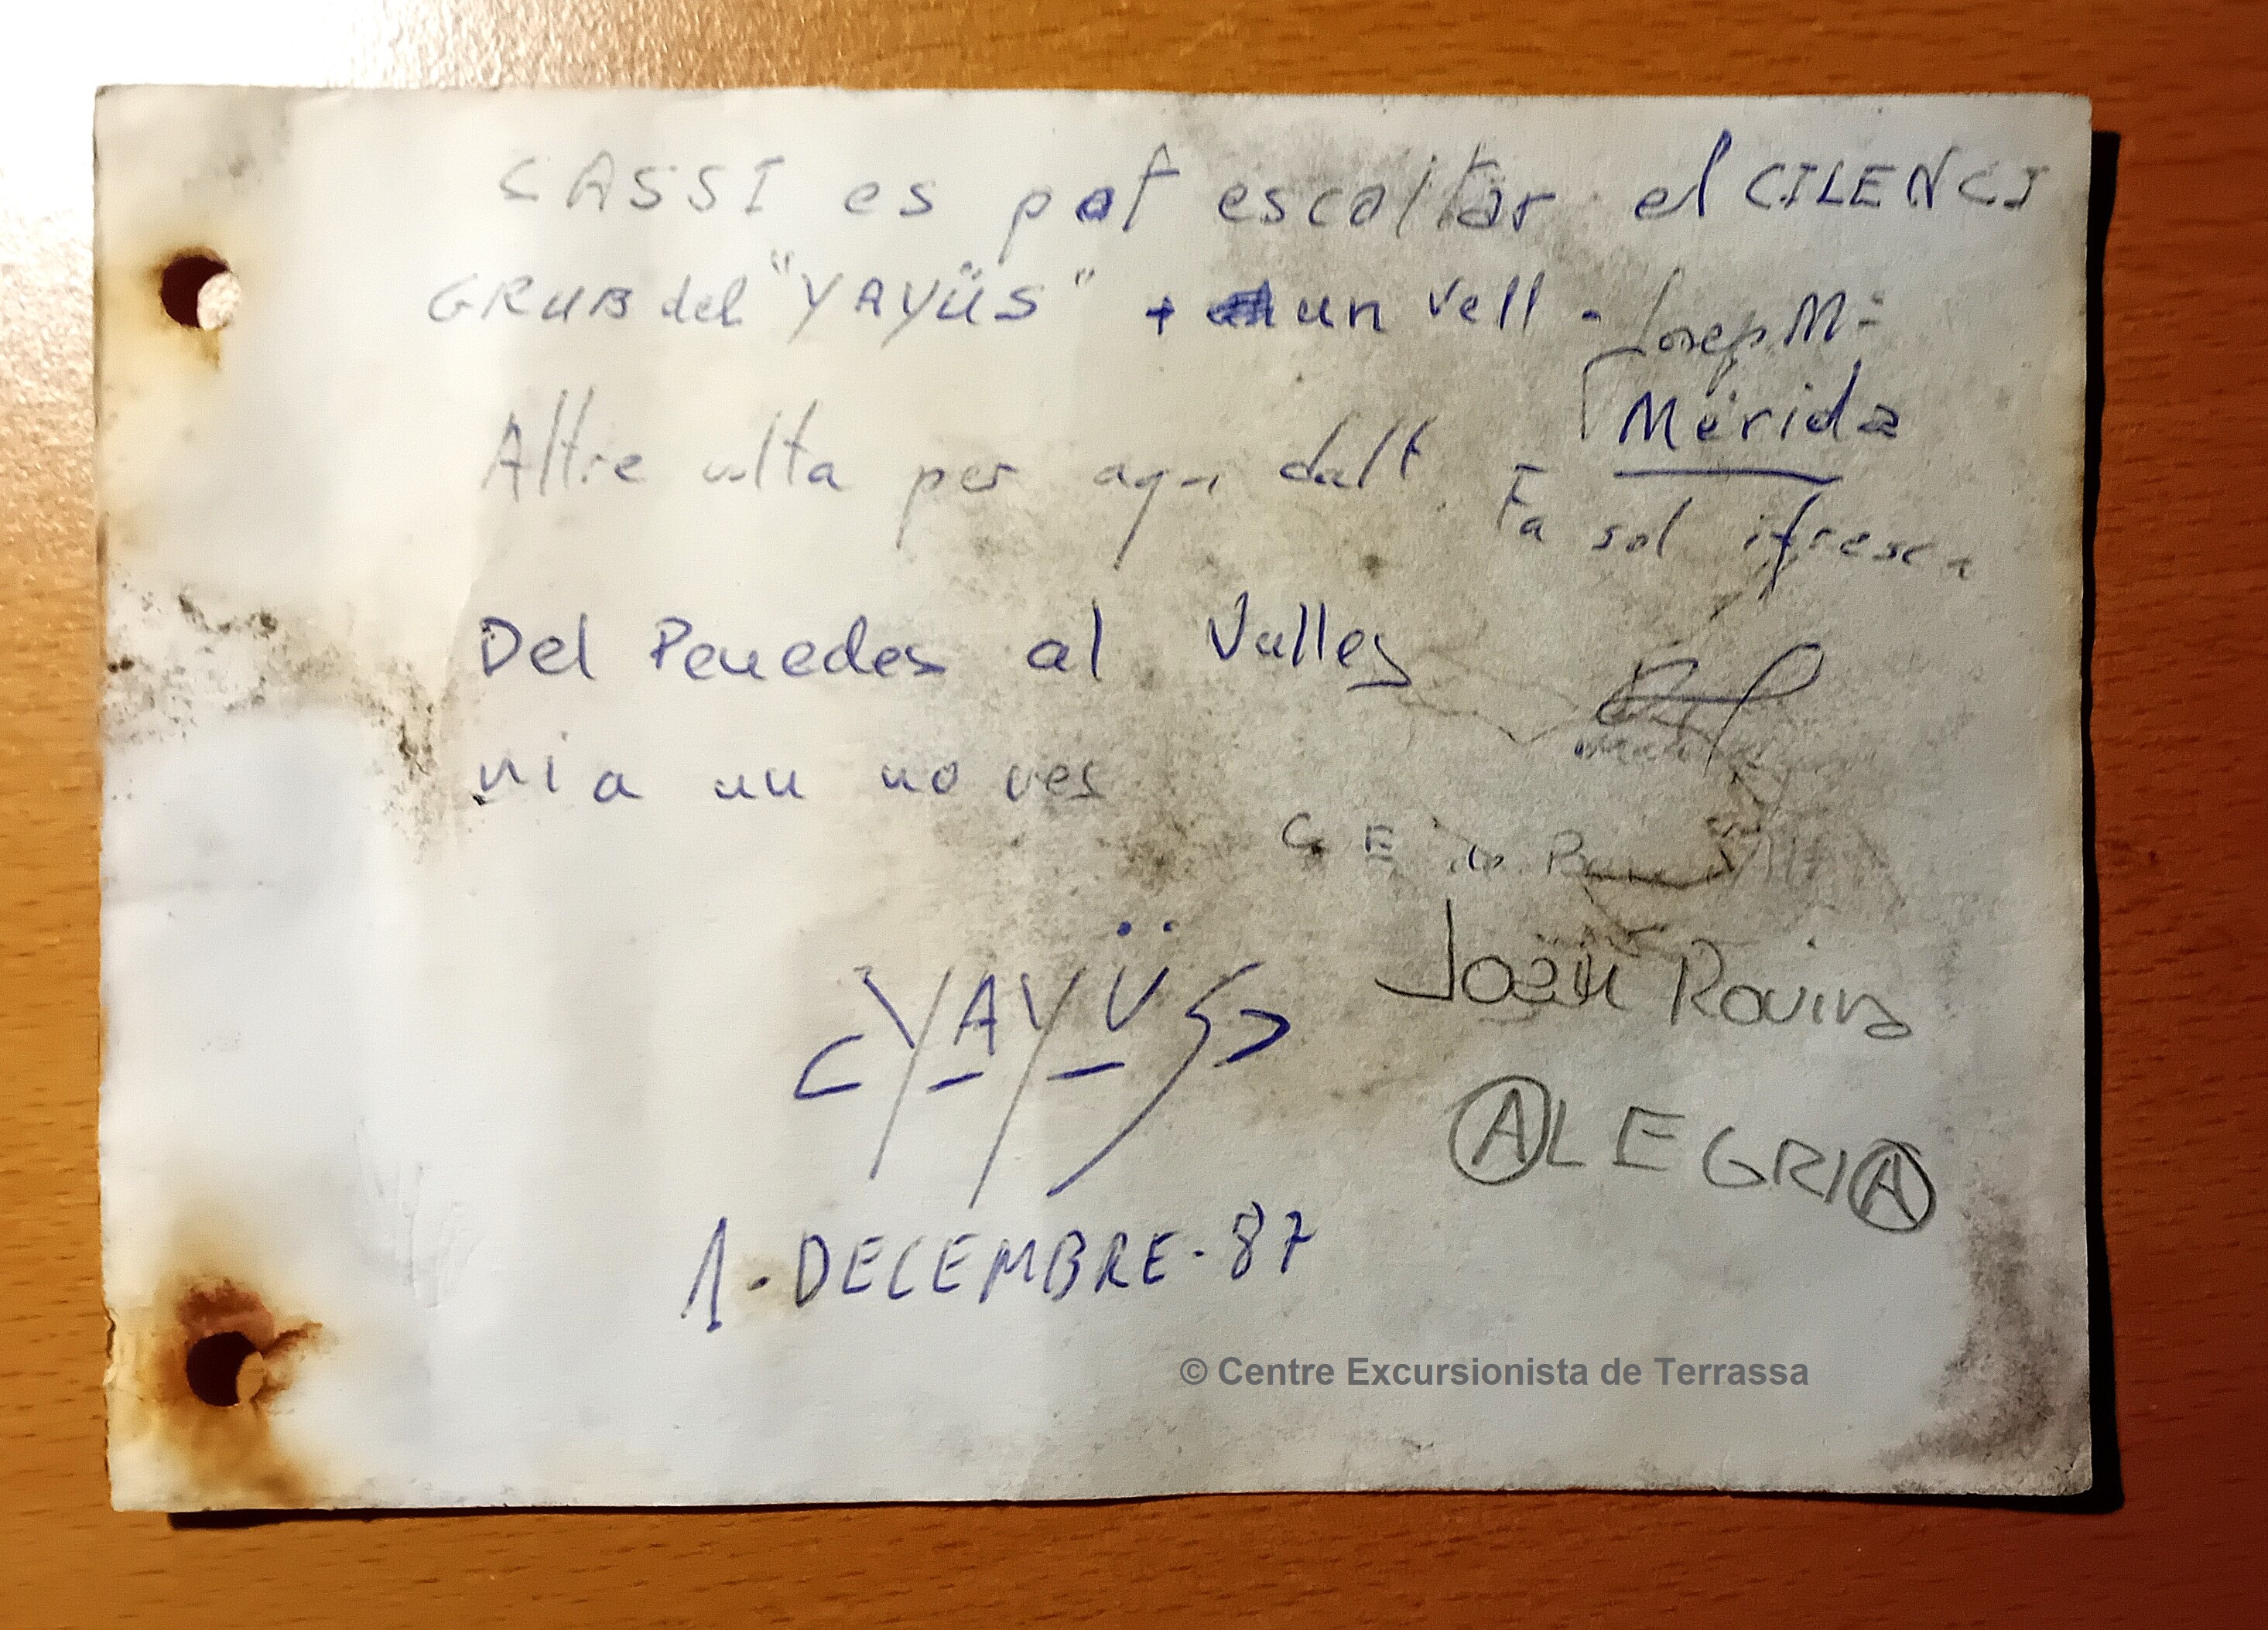 CASSI es pot escoltar el CILENCI
GRUB del "YAYÜS" + un vell -
Josep Mª
Mérida
Altre volta per aqui dalt. Fa sol i fresca
Del Penedes al Valles
ni a un no ves
C E
Joan Rovira
YAYÜS
ALEGRIA
1-DECEMBRE-87
© Centre Excursionista de Terrassa